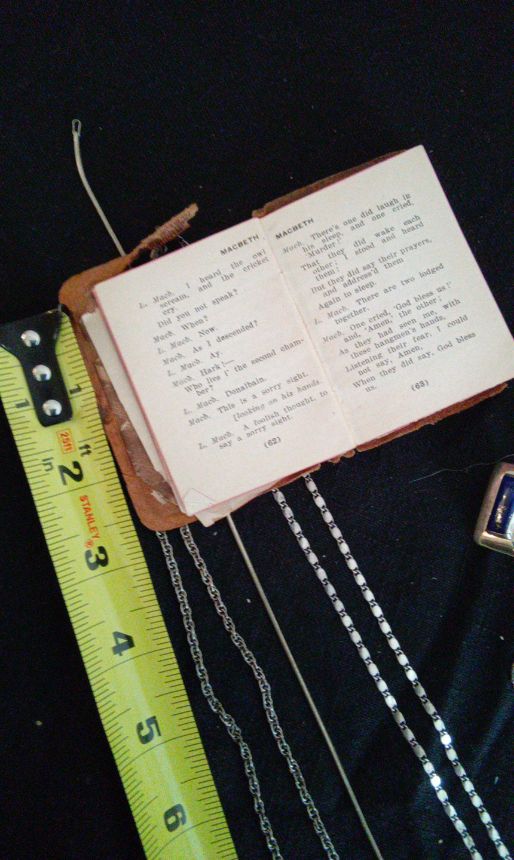 MACBETH
L. Mach. I heard the owl
scream, and the cricket
cry.
Did you not speak?
Mach. When?
L. Mach. Now.
Mach. As I descended?
L. Mach. Ay.
Mach. Hark!—
Who lies i' the second cham-
ber?
L. Mach. Donalbain.
Mach. This is a sorry sight.
(looking on his hands.
L. Mach. A foolish thought, to
say a sorry sight.
(62)
MACBETH
Mach. There's one did laugh in
his sleep, and one cried,
'Murder!'
That they did wake each
other; I stood and heard
them;
But they did say their prayers,
and address'd them
Again to sleep.
L. Mach. There are two lodged
together.
Mach. One cried, 'God bless us!'
and, 'Amen,' the other;
As they had seen me, with
these hangmen's hands,
Listening their fear, I could
not say, 'Amen,'
When they did say, God bless
us.
(63)
1 1
ft
25ft
in 2
STANLEY®
3
4
5
6